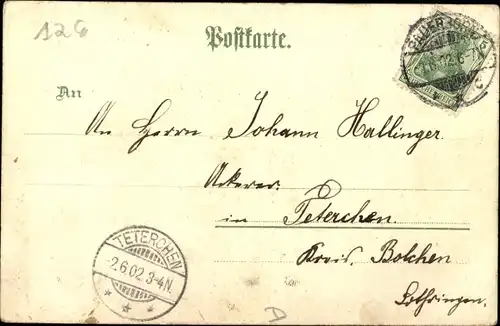 126
Postkarte.
An
An Herrn Johann Hallinger
Ackerer
in Teterchen.
Kreis. Bolchen
Lothringen.
TETERCHEN
2.6.02 3-4N.
A